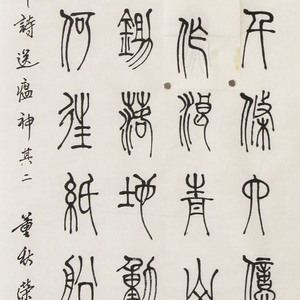 千條六億
作浪青山
鋤落地動
何往紙船
詩送瘟神其二 董